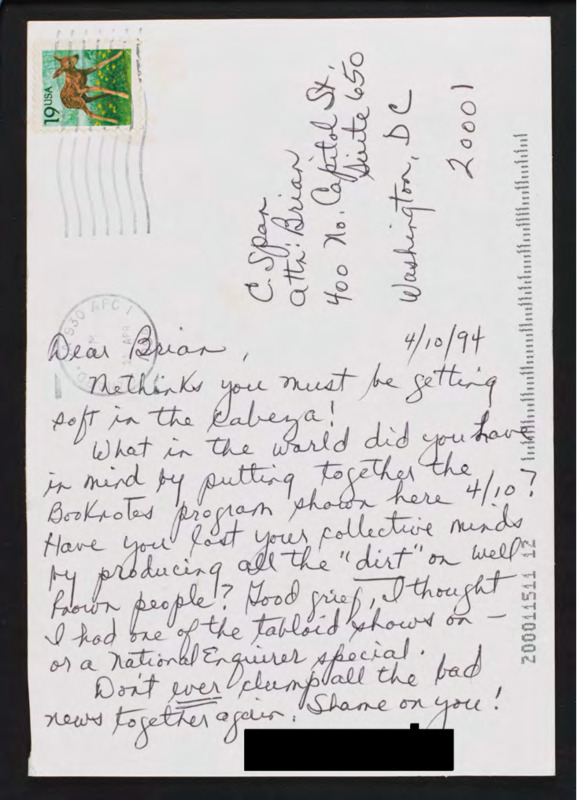 19 USA
C. Span
Attn: Brian
400 No. Capitol St.
Suite 650
Washington, DC
20001
Dear Brian,
4/10/94
Methinks you must be getting
soft in the cabeza!
What in the world did you have
in mind by putting together the
Booknotes program shown here 4/10?
Have you lost your collective minds
by producing all the "dirt" on well
known people? Good grief, I thought
I had one of the tabloid shows on —
or a National Enquirer special.
Don't ever clump all the bad
news together again. Shame on you!
200011511 12